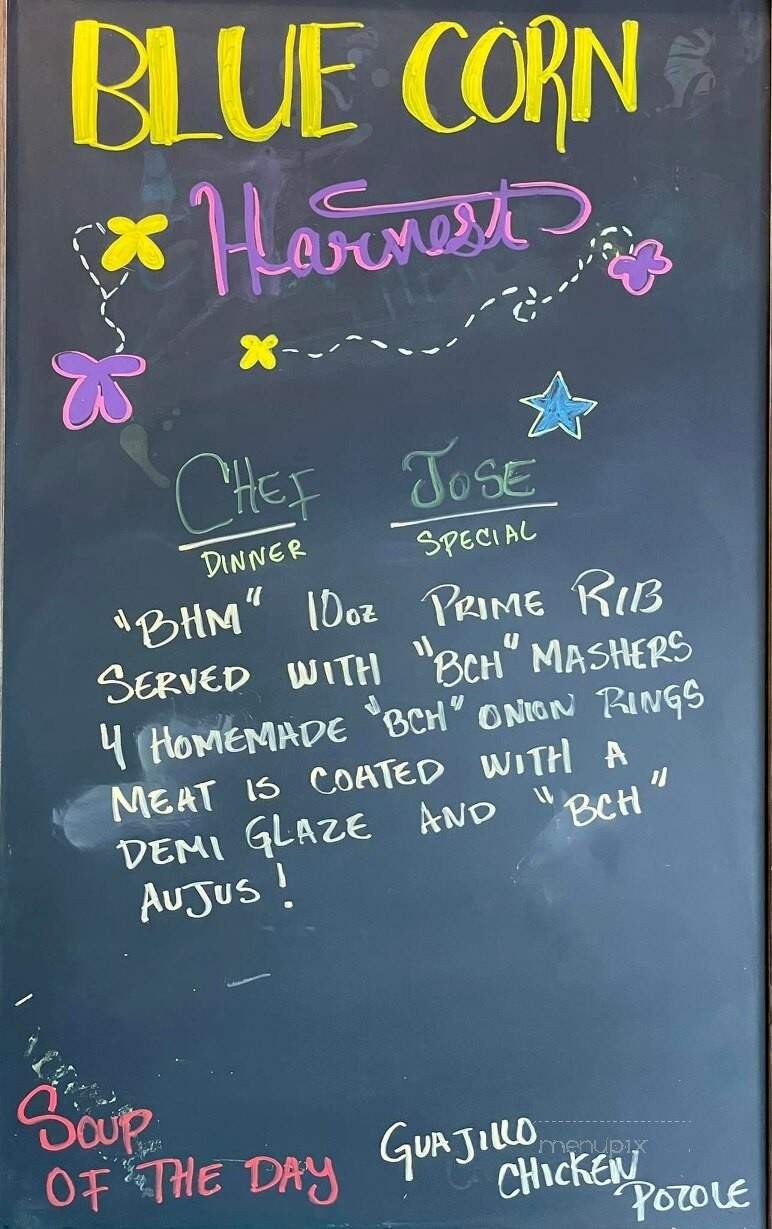 BLUE CORN
Harvest
CHEF JOSE
DINNER SPECIAL
"BHM" 10oz PRIME RIB
SERVED WITH "BCH" MASHERS
4 HOMEMADE "BCH" ONION RINGS
MEAT IS COATED WITH A
DEMI GLAZE AND "BCH"
AUJUS!
SOUP
OF THE DAY
GUAJILLO
CHICKEN
POZOLE
menupix